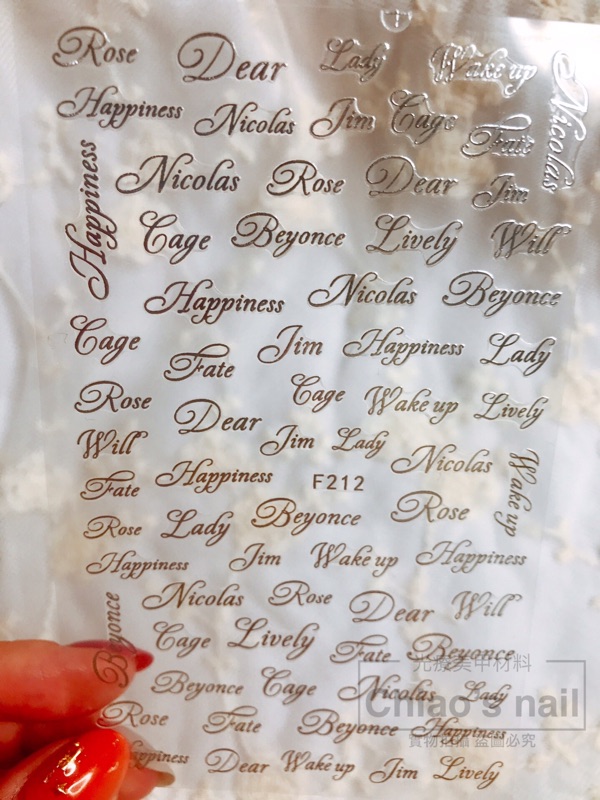 Rose Dear Lady Wake up
Happiness Nicolas Jim Cage Fate Nicolas
Happiness Nicolas Rose Dear Jim
Cage Beyonce Lively Will
Happiness Nicolas Beyonce
Cage Fate Jim Happiness Lady
Rose Dear Cage Wake up Lively
Will Jim Lady Nicolas
Fate Happiness F212 Rose Wake up
Rose Lady Beyonce
Happiness Jim Wake up Happiness
Beyonce Nicolas Rose Dear Will
Cage Lively Fate Beyonce
光療美甲材料
Beyonce Cage Nicolas Lady
Chiao's nail
Rose Fate Beyonce Happiness
實物拍攝 盜圖必究
Happiness Dear Wake up Jim Lively